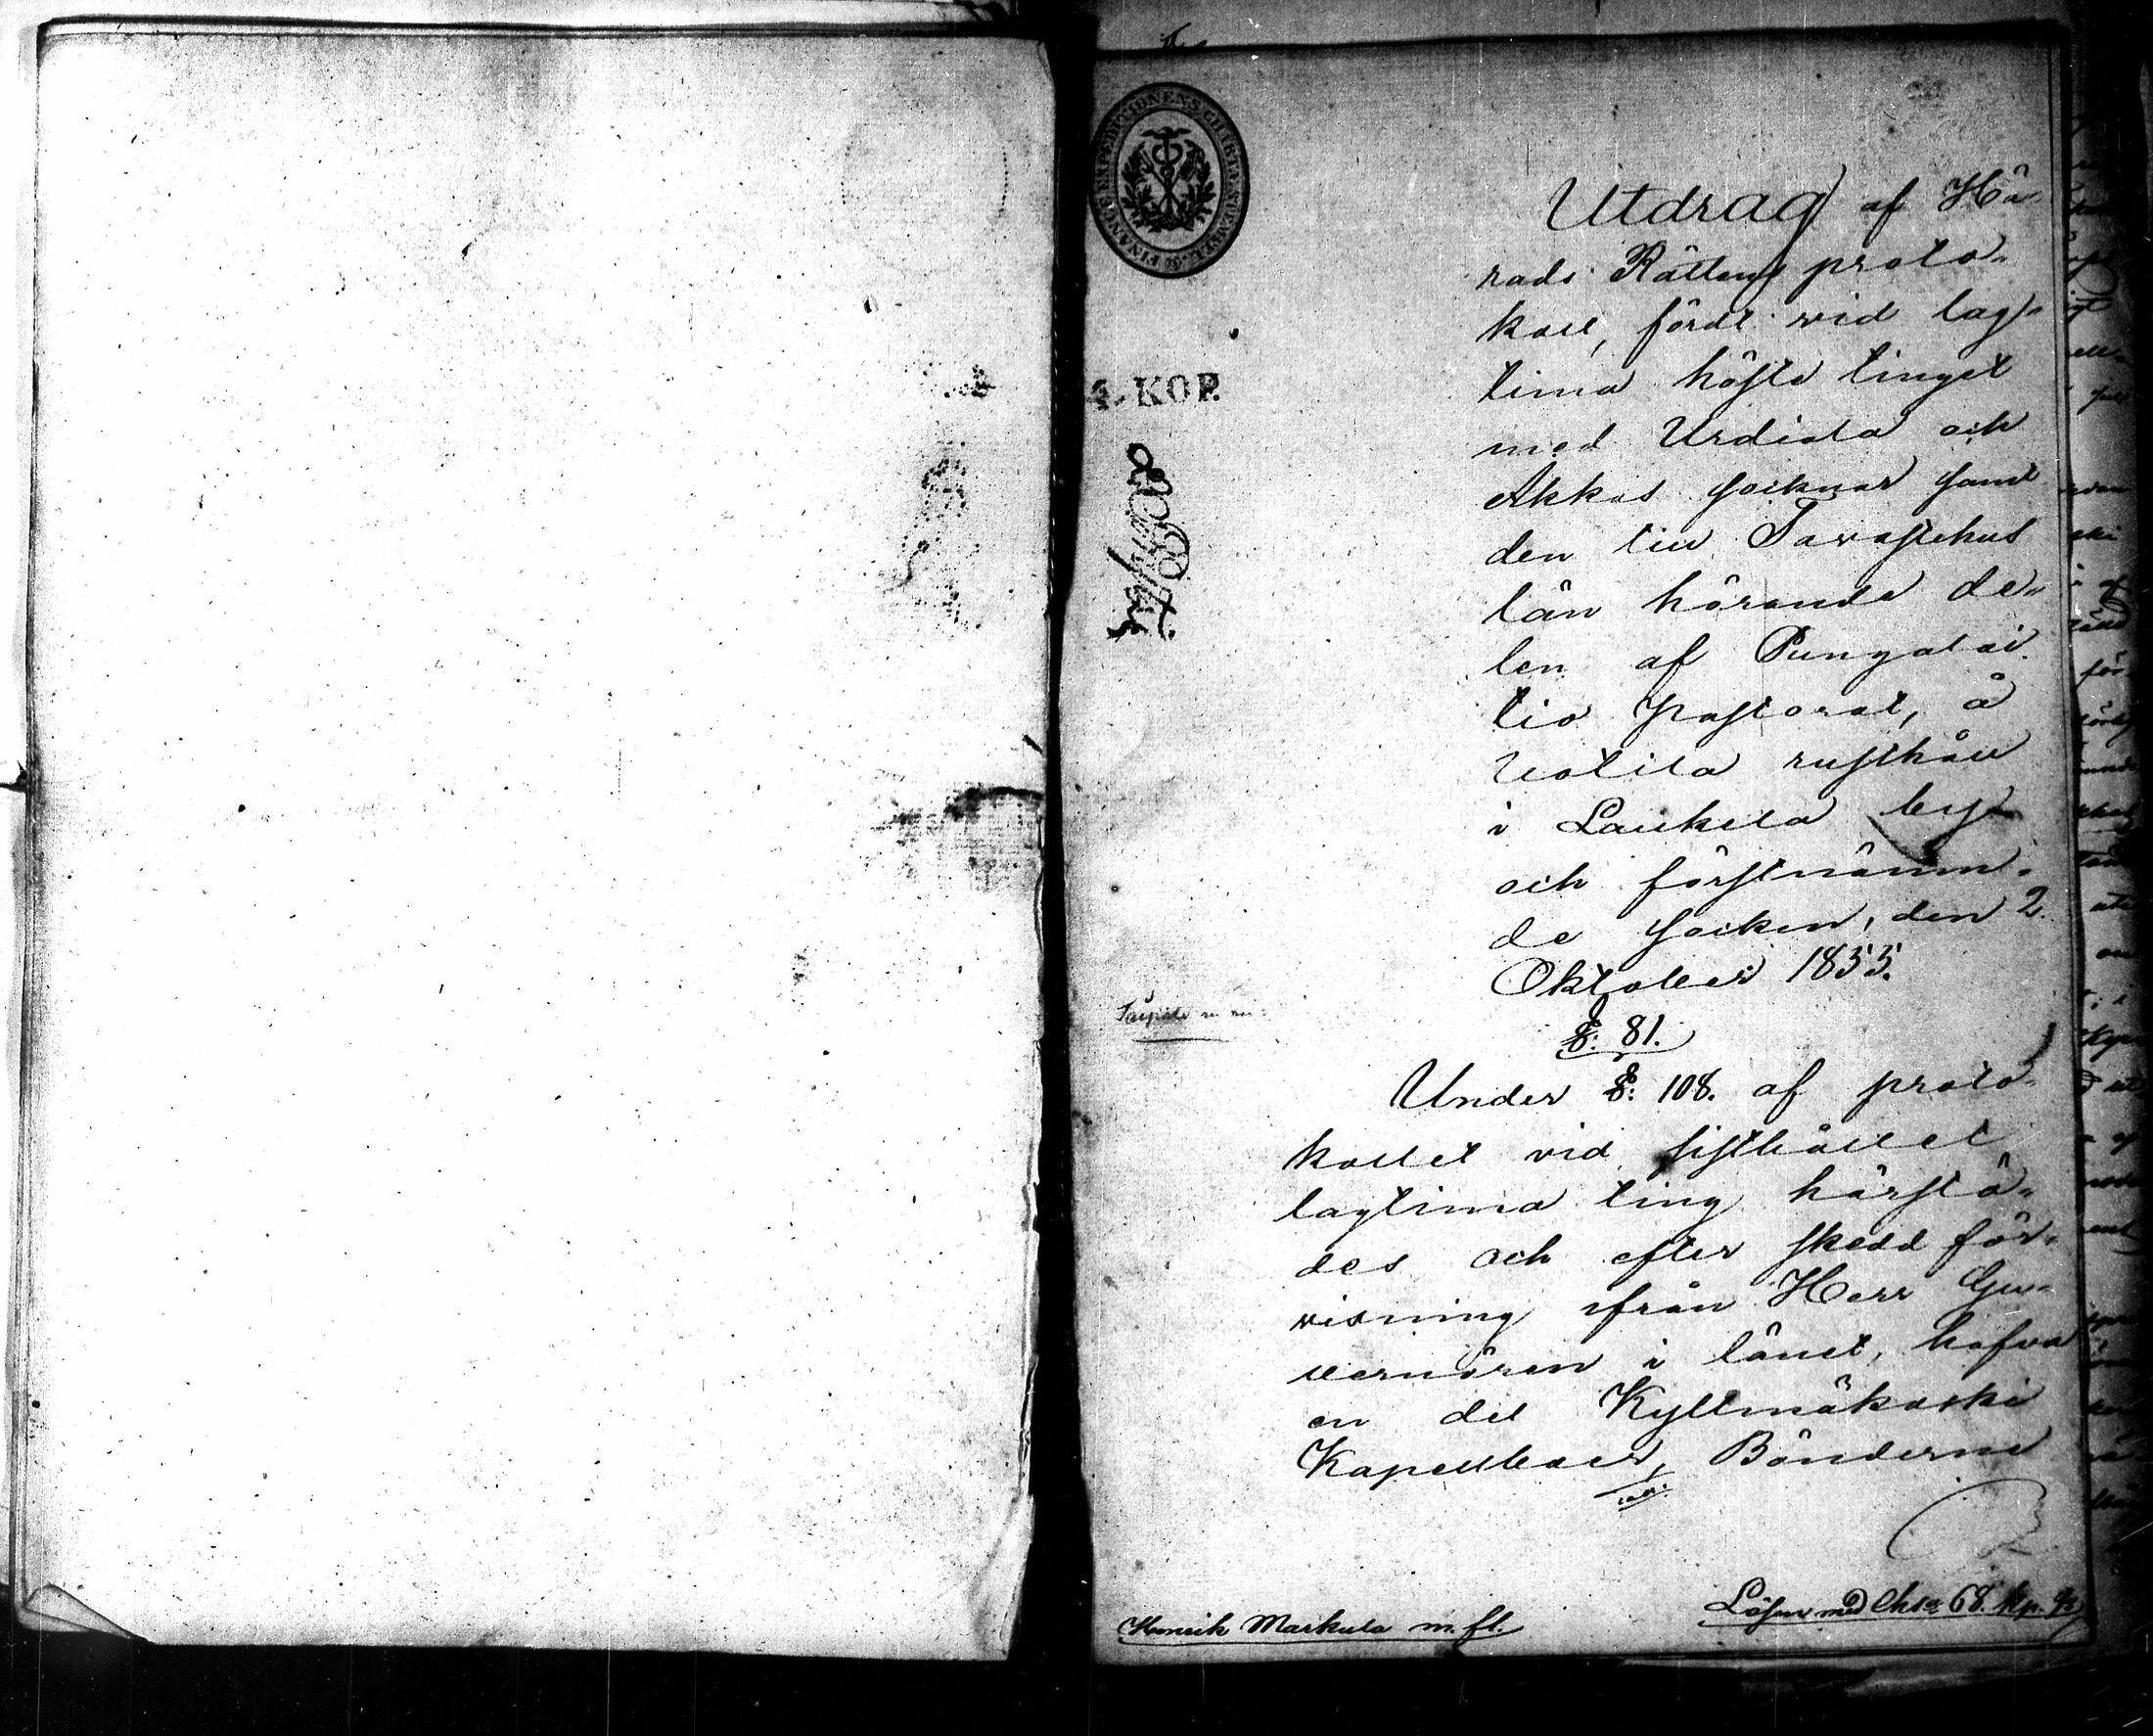 FINANCE EXPEDITIONENS CHARTÆ SIGILLATÆ
4. KOP.
Utdrag af Hä-
rads Rättens proto-
koll, fördt vid lag-
tima höste tinget
med Urdiala och
Akkas socknar samt
den till Tavastehus
län hörande de-
len af Pungalai-
tio Pastorat, å
Uotila rusthåll
i Laukela by
och förstnämn-
de socken, den 2
Oktober 1855.
§: 81.
Under §: 108. af proto-
kollet vid sisthållet
lagtima ting härstä-
des och efter skedd för-
visning ifrån Herr Gu-
vernören i länet, hafva
en del Kyllmäkoski
Kapellboer, Bönderne
Henrik Markula m. fl.
Lösen med Char 68. kop. S